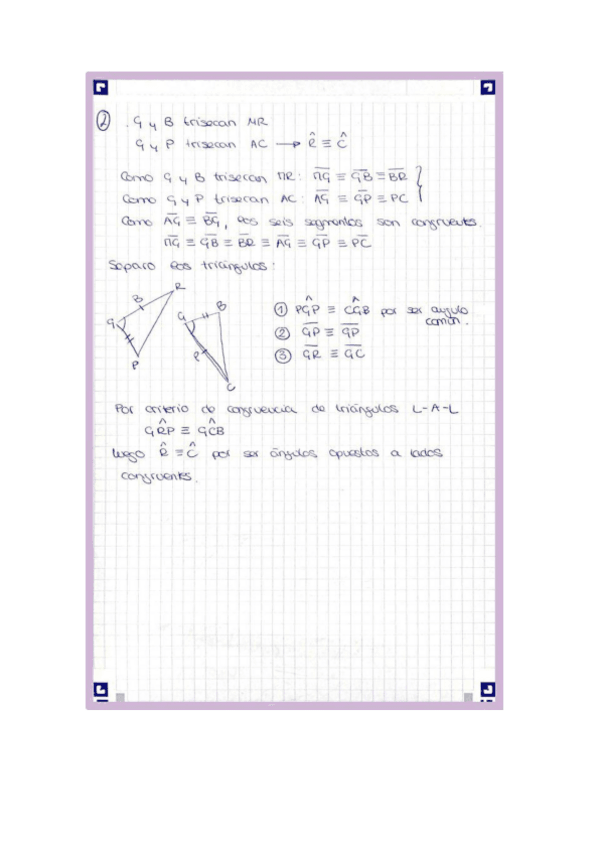 ② . G y B trisecan MR
G y P trisecan AC → R̂ ≡ Ĉ
Como G y B trisecan MR: MG ≡ GB ≡ BR
Como G y P trisecan AC: AG ≡ GP ≡ PC
Como AG ≡ BG, los seis segmentos son congruents.
MG ≡ GB ≡ BR ≡ AG ≡ GP ≡ PC
Separo los triángulos:
R
B
G
P
B
G
P
C
① PĜP ≡ CĜB por ser angulo
común.
② GP ≡ GP
③ GR ≡ GC
Por criterio de congruencia de triángulos L-A-L
GR̂P ≡ GĈB
luego R̂ ≡ Ĉ por ser ángulos opuestos a lados
congruentes.